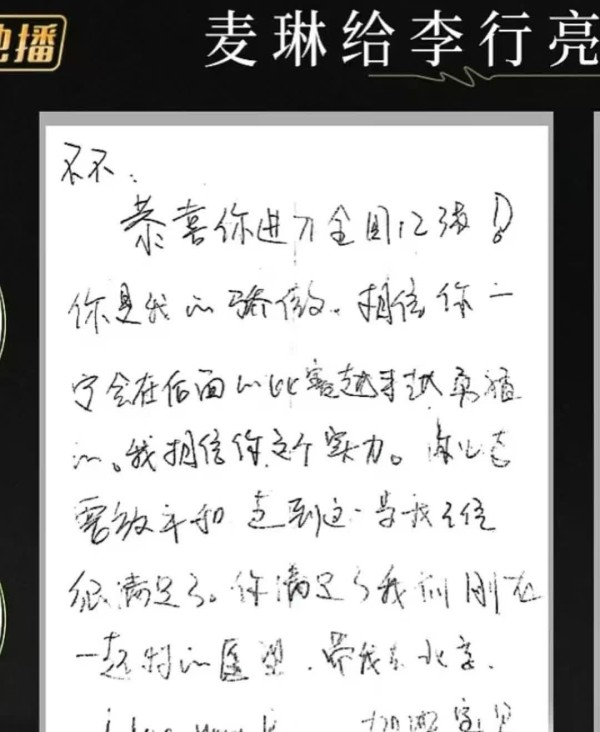 地播
麦琳给李行亮
不不：
恭喜你进了全国12强！
你是我的骄傲。相信你一
定会在后面的比赛越来越勇猛
的。我相信你这个实力。
需放平和 走到这一步我已经
很满足了。你满足了我们刚在
一起时的愿望，带我来北京，